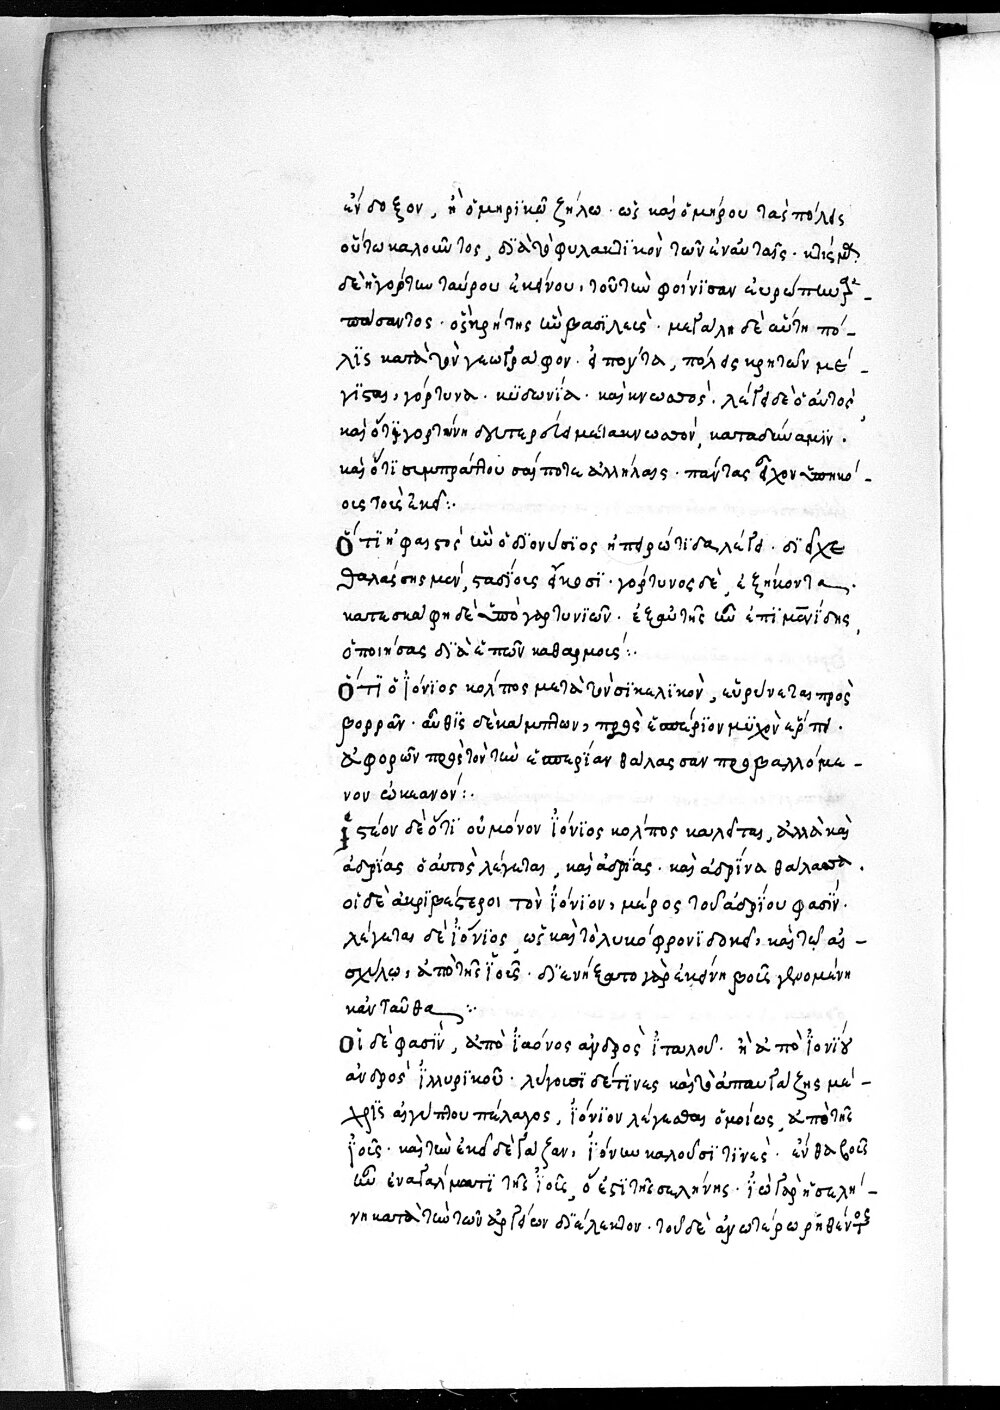 ἔνδοξον, ἢ ὁμηρϊκῶ ζήλω· ὡς καὶ ὁμήρου τὰς πόλεις
οὕτω καλοῦντος, δϊὰ τὸ φυλακτϊκὸν τῶν ἐν αὐταῖς·
δὲ ἡ γόρτυν ταύρου ἐκείνου, τοῦ τὴν φοίνϊσαν εὐρώπην
πείσαντος· ὃς κρήτης ἦν βασϊλεὺς· μεγάλη δὲ αὕτη πό-
λϊς κατὰ τὸν γεωγράφον· εἰπόντα, πόλεις κρητῶν μέ-
γϊσται, γόρτυνα· κϋδωνία· καὶ κνωσσὸς· λέγει δὲ ὁ αὐτὸς,
καὶ ὅτϊ ἡ γορτύνη δευτερεύει μετὰ κνωσσὸν, κατὰ δύναμϊν·
καὶ ὅτϊ συμπράττουσαί ποτε ἀλλήλαις· πάντας εἶχον ὑπηκό-
οις τοὺς ἐκεῖ:·
Ὅτϊ ἡ φαιστὸς ἦν ὁ δϊονύσϊος ἠπειρώτϊδα λέγει· δϊεῖχε
θαλάσσης μὲν, σταδίοις εἴκοσϊ· γόρτυνος δὲ, ἑξήκοντα·
κατεσκάφη δὲ ὑπὸ γορτυνίων· ἐξ αὐτῆς ἦν ἐπϊμενίδης,
ὁ ποιήσας δϊὰ ἐπῶν καθαρμοὺς:·
Ὅτϊ ὁ ἰόνϊος κόλπος μετὰ τὸν σϊκελϊκὸν, εὐρύνεται πρὸς
βορρᾶν· αὖθϊς δὲ κάμπτων, πρὸς ἑσπέρϊον μϋχὸν ἕρπει·
ἀφορῶν πρὸς τὸν τὴν ἑσπερίαν θάλασσαν προβαλλόμε-
νον ὠκεανόν:·
Ἰστέον δὲ ὅτϊ οὐ μόνον ἰόνϊος κόλπος καλεῖται, ἀλλὰ καὶ
ἀδρίας ὁ αὐτὸς λέγεται, καὶ ἀδρίας· καὶ ἀδρϊνὰ θάλασσα·
οἱ δὲ ἀκρϊβέστεροι τὸν ἰόνϊον, μέρος τοῦ ἀδρίου φασϊν·
λέγεται δὲ ἰόνϊος, ὡς καὶ τῶ λυκόφρονϊ δοκεῖ, καὶ τῶ αἰ-
σχύλω, ἀπὸ τῆς ἰοῦς· δϊενήξατο γὰρ ἐκείνη βοῦς γενομένη
κἀνταῦθα:·
Οἱ δέ φασϊν, ἀπὸ ἰάονος ἀνδρὸς ἰταλοῦ· ἢ ἀπὸ ἰονίου
ἀνδρὸς ἰλλυρϊκοῦ· λέγουσϊ δέ τϊνες καὶ τὸ ἀπὸ γάζης μέ-
χρϊς αἰγύπτου πέλαγος, ἰόνϊον λέγεσθαι ὁμοίως, ἀπὸ τῆς
ἰοῦς· καὶ τὴν ἐκεῖ δὲ γάζαν, ἰόνην καλοῦσϊ τϊνὲς· ἔνθα βοῦς
ἦν ἐν ἀγάλματϊ τῆς ἰοῦς, ὅ ἐστϊ τῆς σελήνης· ἰὼ γὰρ ἡ σελή-
νη κατὰ τὴν τῶν ἀργείων δϊάλεκτον· τοῦ δὲ ἀνωτέρω ῥηθέντος